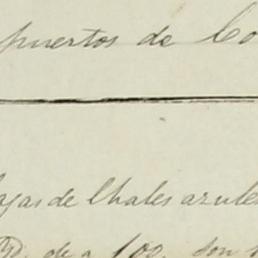 puertos de Co
ajas de Chales azules
de a 100 son